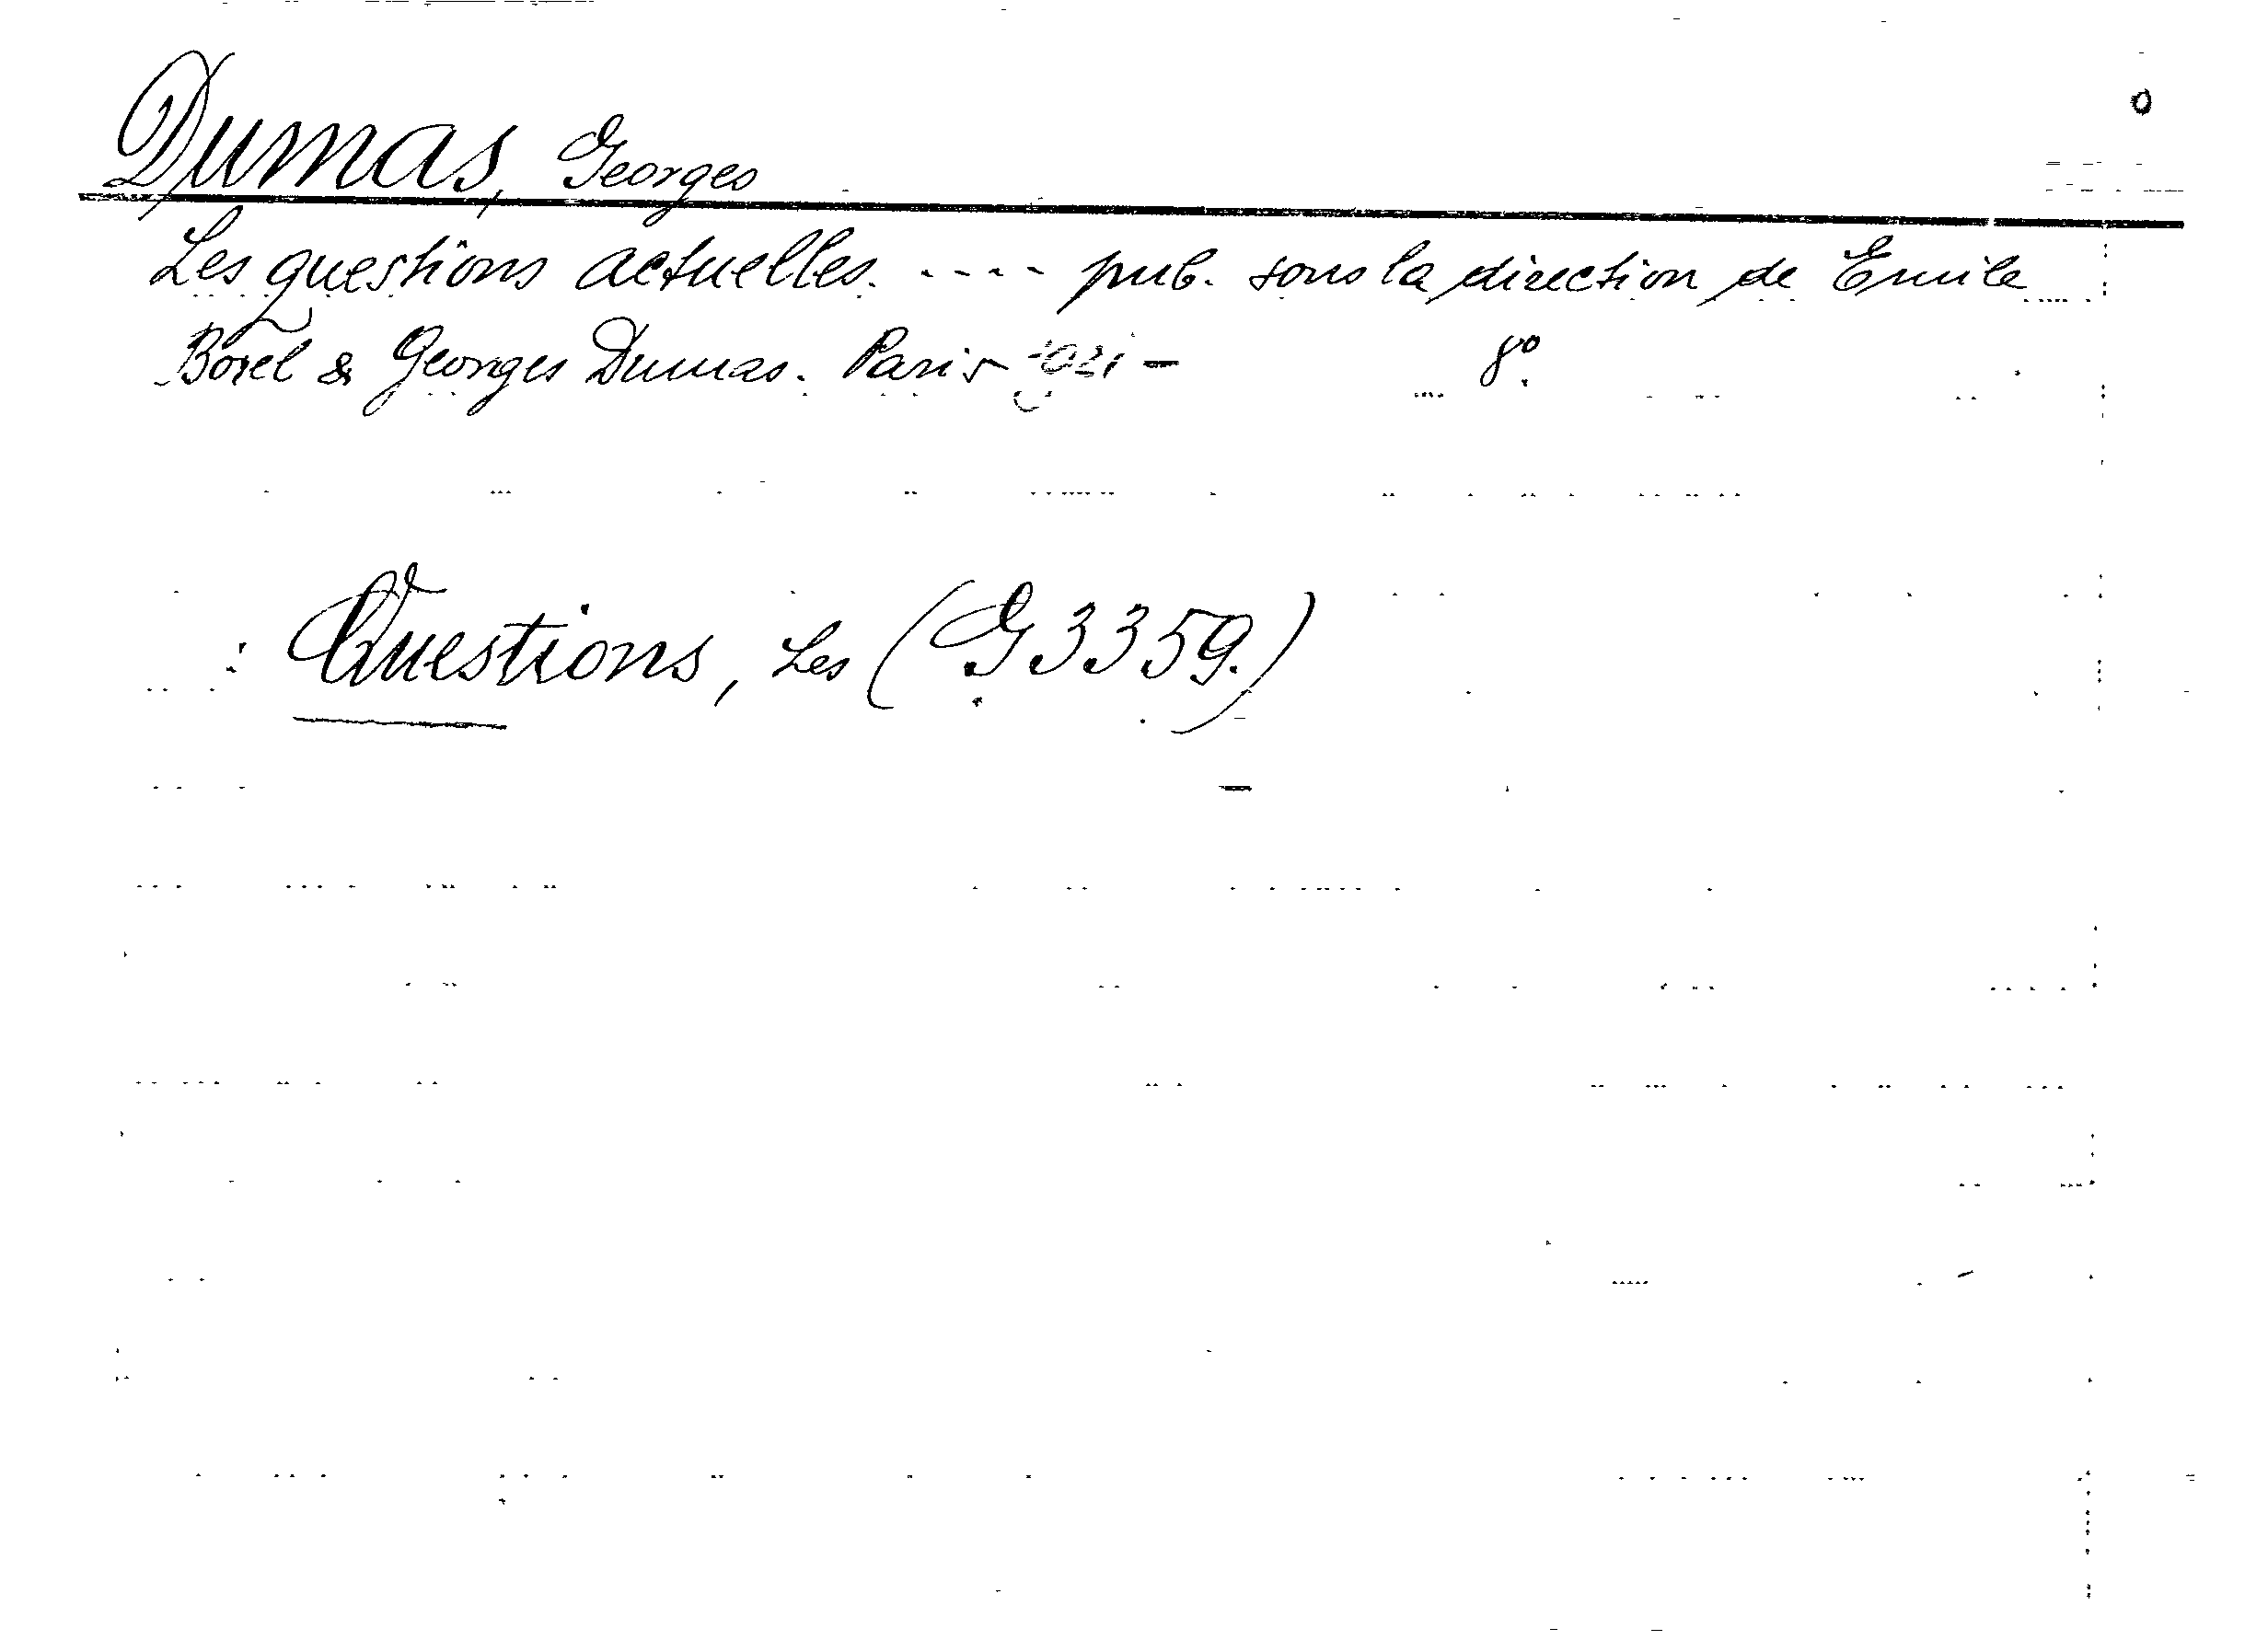 Dumas, Georges
Les questions actuelles. ---- pub. sous la direction de Emile
Borel & Georges Dumas. Paris 8º.
: Questions, Les (G 3359.)